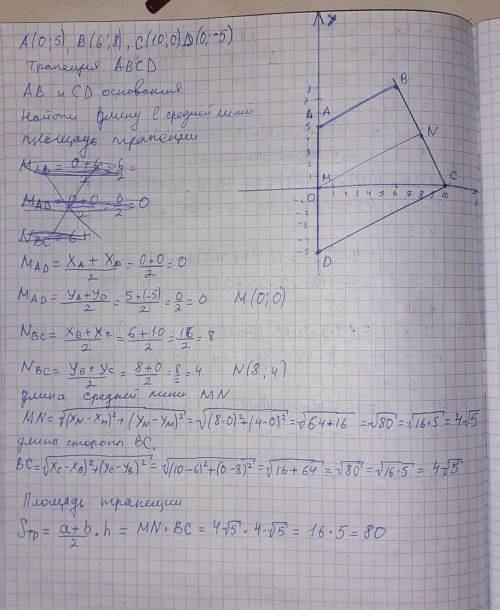 A(0;5), B(6;8), C(10;0) D(0;-5)
Трапеция ABCD
AB и CD основания
Найти длину средней линии
площадь трапеции
M_AB = (0+6)/2 = 6/2 =
M_AD = (0+0)/2 = 0/2 = 0
N_BC = 6+
M_AD = (x_A + x_D)/2 = (0+0)/2 = 0
M_AD = (y_A + y_D)/2 = (5+(-5))/2 = 0/2 = 0 M(0;0)
N_BC = (x_B + x_C)/2 = (6+10)/2 = 16/2 = 8
N_BC = (y_B + y_C)/2 = (8+0)/2 = 8/2 = 4 N(8;4)
длина средней линии MN
MN = √((x_N - x_M)² + (y_N - y_M)²) = √((8-0)² + (4-0)²) = √(64+16) = √80 = √(16·5) = 4√5
длина стороны BC.
BC = √((x_C - x_B)² + (y_C - y_B)²) = √((10-6)² + (0-8)²) = √(16+64) = √80 = √(16·5) = 4√5
Площадь трапеции
S_тр = (a+b)/2 · h = MN · BC = 4√5 · 4√5 = 16·5 = 80
A
B
N
M
C
O
D
5
1
1 2 3 4 5 6 7 8 9 10
-5